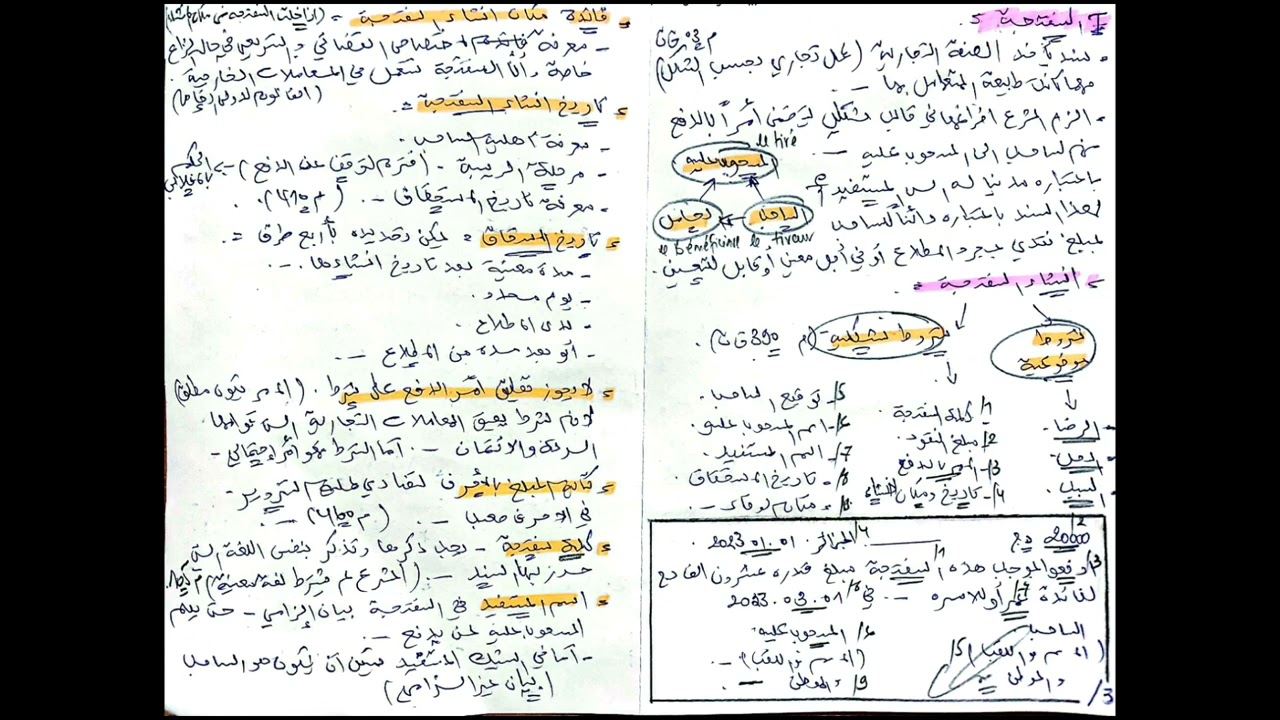 I السفتجة :
سند يأخذ الصفة التجارية (عمل تجاري بحسب الشكل) م 3 ق ت
مهما كانت طبيعة المتعامل بها
الزم المشرع افراغها في قالب شكلي ليتضمن أمرا بالدفع
من الساحب الى المسحوب عليه
باعتباره مدينا له الى المستفيد
لهذا السند باعتباره دائنا للساحب
لمبلغ نقدي بمجرد الاطلاع أو في أجل معين أو قابل للتعيين.
le tiré
المسحوب عليه
الساحب
الحامل
le bénéficiaire
le tireur
انشاء السفتجة :
شروط موضوعية
شروط شكلية (م 390 ق ت)
الرضا
المحل
السبب
1/ كلمة السفتجة
2/ مبلغ النقود
3/ الأمر بالدفع
4/ تاريخ ومكان الإنشاء
5/ توقيع الساحب
6/ اسم المسحوب عليه
7/ اسم المستفيد
8/ تاريخ الاستحقاق
مكان الوفاء
2/ 20000 دج
4/ الجزائر. 01.01.2023
3/ ادفعوا بموجب هذه 1/ السفتجة مبلغ قدره عشرون ألف دج
لفائدة 7/ عمر أو للأمره في 8/ 01.03.2023
الساحب
(الاسم واللقب) 5/
والموطن
6/ المسحوب عليه
(الاسم واللقب)
9/ والموطن
3/
فائدة مكان انشاء السفتجة :
معرفة الاختصاص القضائي والتشريعي في حالة النزاع
خاصة وأن السفتجة تستعمل في المعاملات الخارجية.
(القانون الدولي الخاص)
تاريخ انشاء السفتجة :
معرفة أهلية الساحب.
مرحلة الريبة. (فترة التوقف عن الدفع) ← الحكم بالإفلاس
معرفة تاريخ الاستحقاق
تاريخ الاستحقاق : يمكن تحديده بأربع طرق :
مدة معينة بعد تاريخ انشاءها
يوم محدد
لدى الاطلاع
أو بعد مدة من الاطلاع
لا يجوز تعليق أمر الدفع على شرط. (الأمر يكون مطلق)
لأن الشرط يعيق المعاملات التجارية التي قوامها
السرعة والائتمان أما الشرط فهو أمر احتمالي
كتابة المبلغ بالأحرف لتفادي التزوير
في الأحرف صعب
كلمة سفتجة - يجب ذكرها وتذكر بنفس اللغة التي
حرر بها السند (المشرع لم يشترط لغة معينة)
اسم المستفيد في السفتجة بيان إلزامي - حتى يعلم
المسحوب عليه لمن يدفع
أما في الشيك المستفيد ممكن أن يكون هو الساحب
(بيان غير إلزامي)